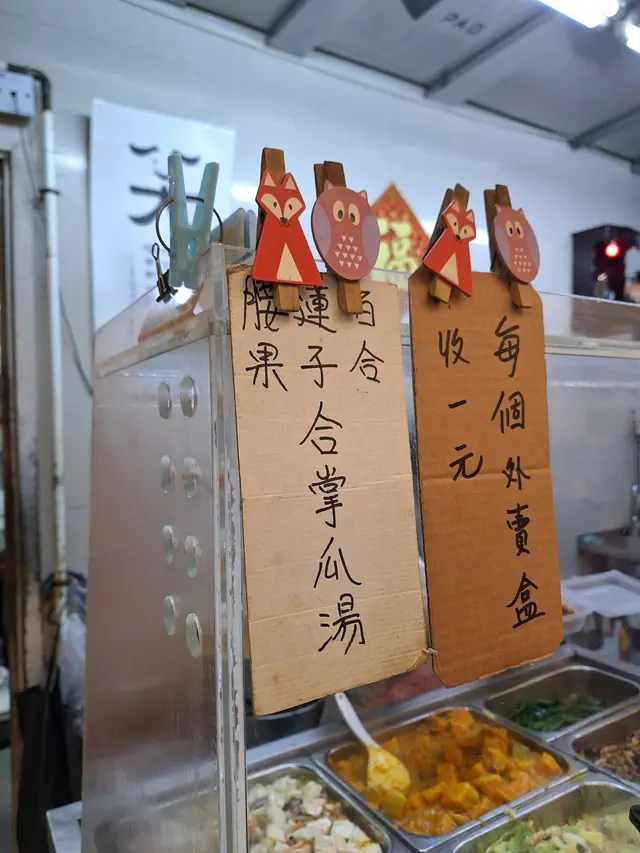 百合
蓮子合掌瓜湯
腰果
每個外賣盒
收一元
福
PAD